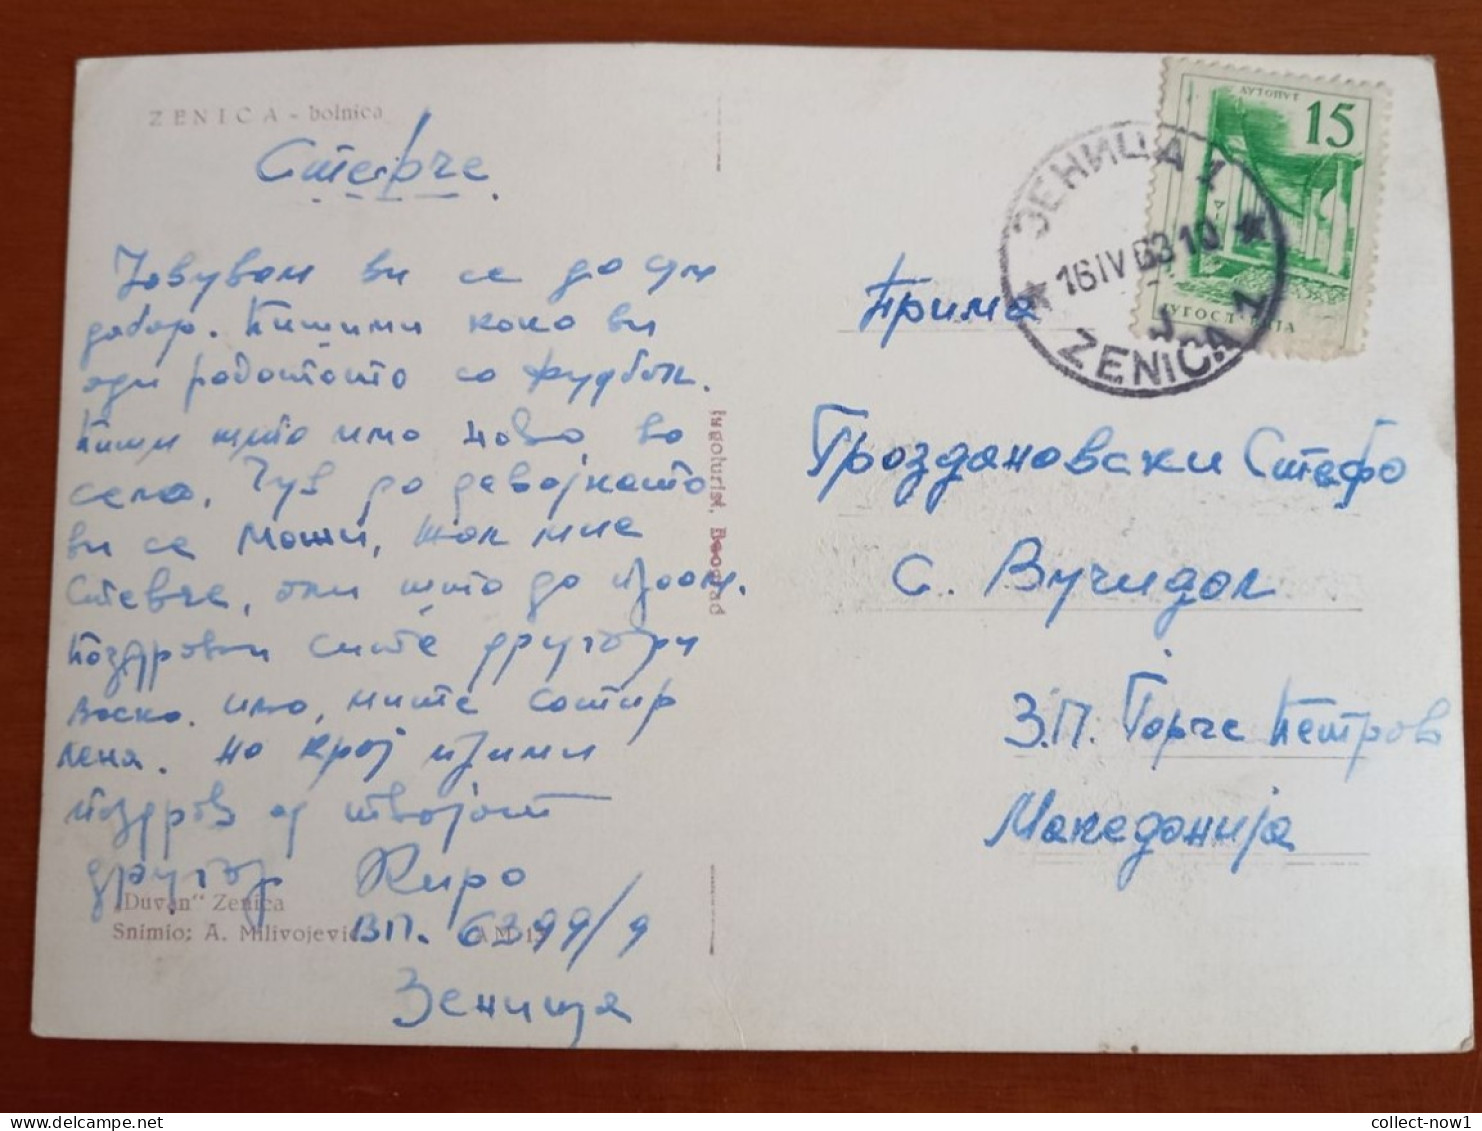 ZENICA - bolnica
Стефче
ви се до
добар. Пишими како ви
оди работата со фудбал.
Пиши што има ново во
село. Чув да девојката
ви се мажи,
Стевче, што да
Поздрави сите другари
Васко. Сотир
на крај
поздрав од твојот
другар Киро
„Duvan“ Zenica
Snimio: A. Milivojević
ВП. 6399/9
Зеница
Jugoturist, Beograd
АУТОПУТ
15
ЈУГОСЛАВИЈА
ЗЕНИЦА 1
16 IV 63 10
ZENICA 1
Прима
Гроздановски Стефо
с. Вучидол
З.П. Ѓорче Петров
Македонија
collect-now1